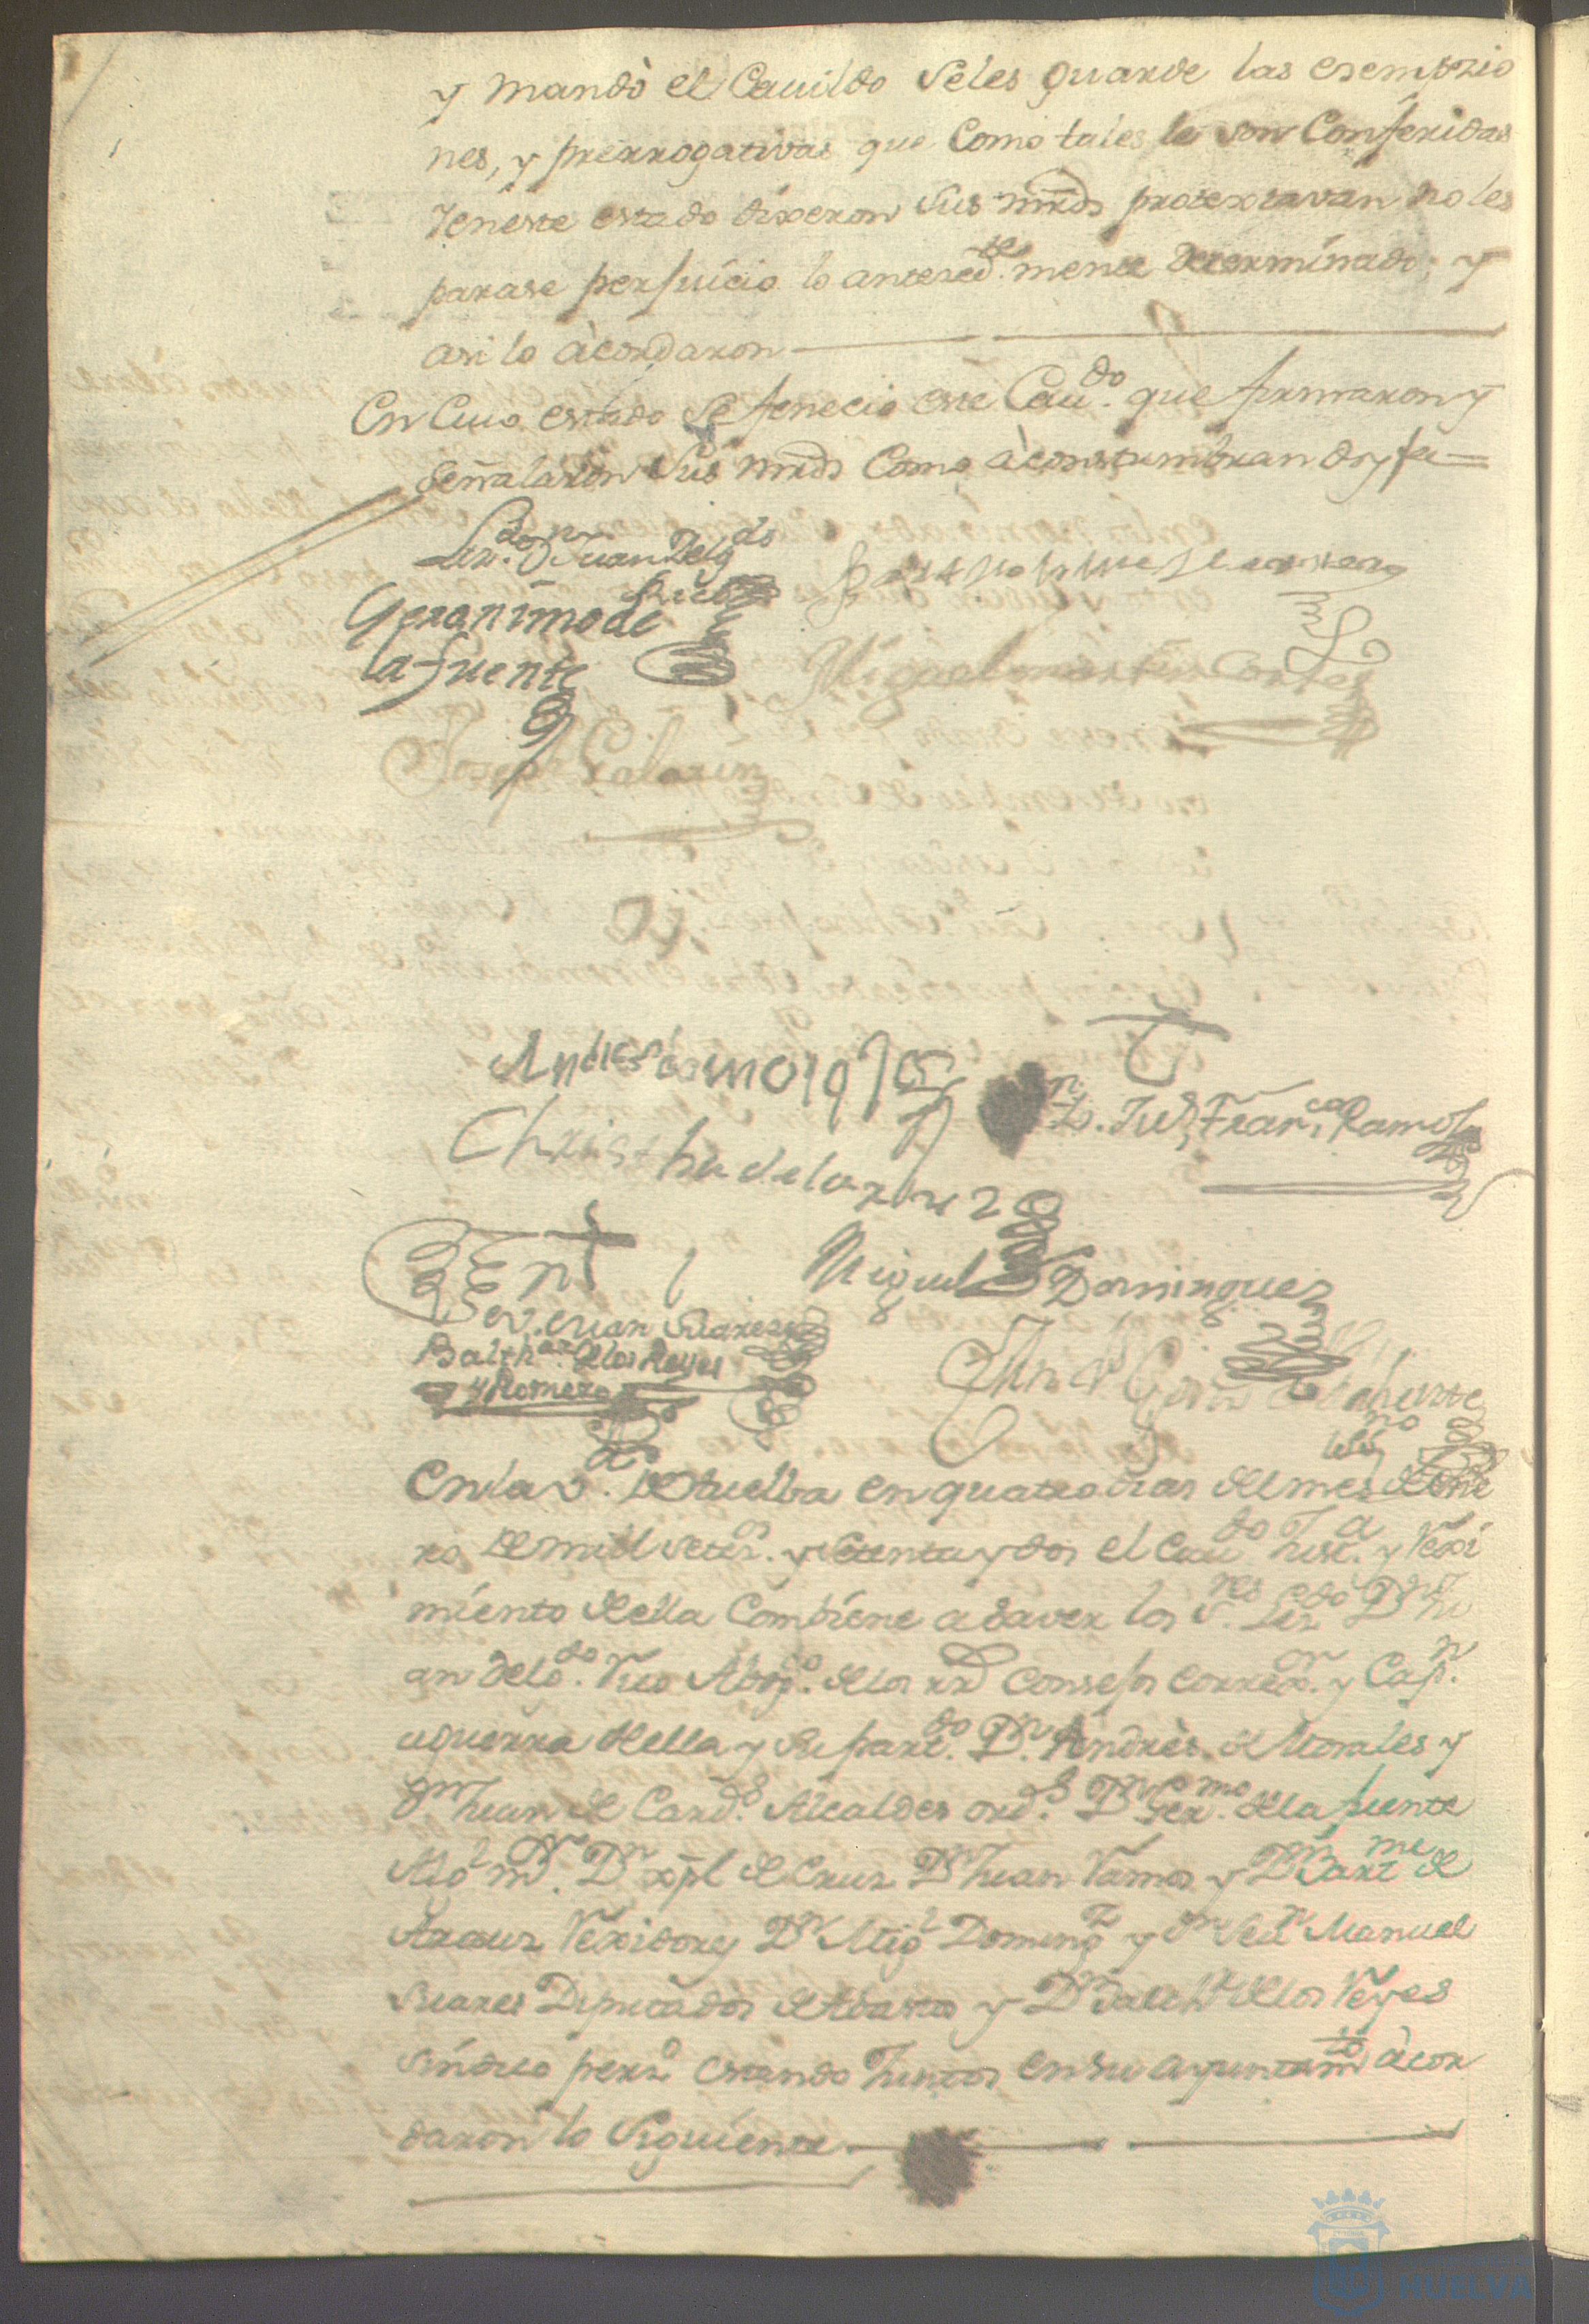 y mandò el Cauildo seles guarde las esempzio
nes, y prerrogativas que Como tales le son Conferidas
Yeneste estado dixeron sus mrds protextavan no les
parase perjuicio lo antezed.te mente determinado; y
asi lo àcordaron
En Cuio estado Se fenecio este Cau.do que firmaron y
señalaron Sus mrds Como àcostumbran doy fee=
Lizdo. Dn Juan Delgdo
Rico
Geronimo de
la fuente
Miguel Cortes
Joseph
Andres de morales
Dn. Ju, Franco Ramos
Christ de la Cruz
Miguel Dominguez
Sev. Man Suarez
Balthar. de los Reyes
y Romero
En la v.a de Huelba en quatro dias del mes de Ene
ro de mill setes. y setenta y dos el Caudo Justa. y Rexi
miento della Combiene a saver los Sres Lizdo Dn Ju
an Delgdo. Rico Abogo. de los rrs Consejos Correxor. y Capn.
aguerra della y su partdo. Dn. Andrès de Morales y
Dn Juan de Card.s Alcaldes ord.s Dn Germo. de la fuente
Algl mr. Dn Xpl de Cruz Dn Juan Ramos y Dn Barme de
Arauz Rexidores Dn Migl Domingz y Dn Sevn Manuel
Suares Diputados de Abasto y Dn Balthr de los Reyes
Síndico persº Estando Juntos en su ayuntamto àcor
daron lo Siguiente
HUELVA